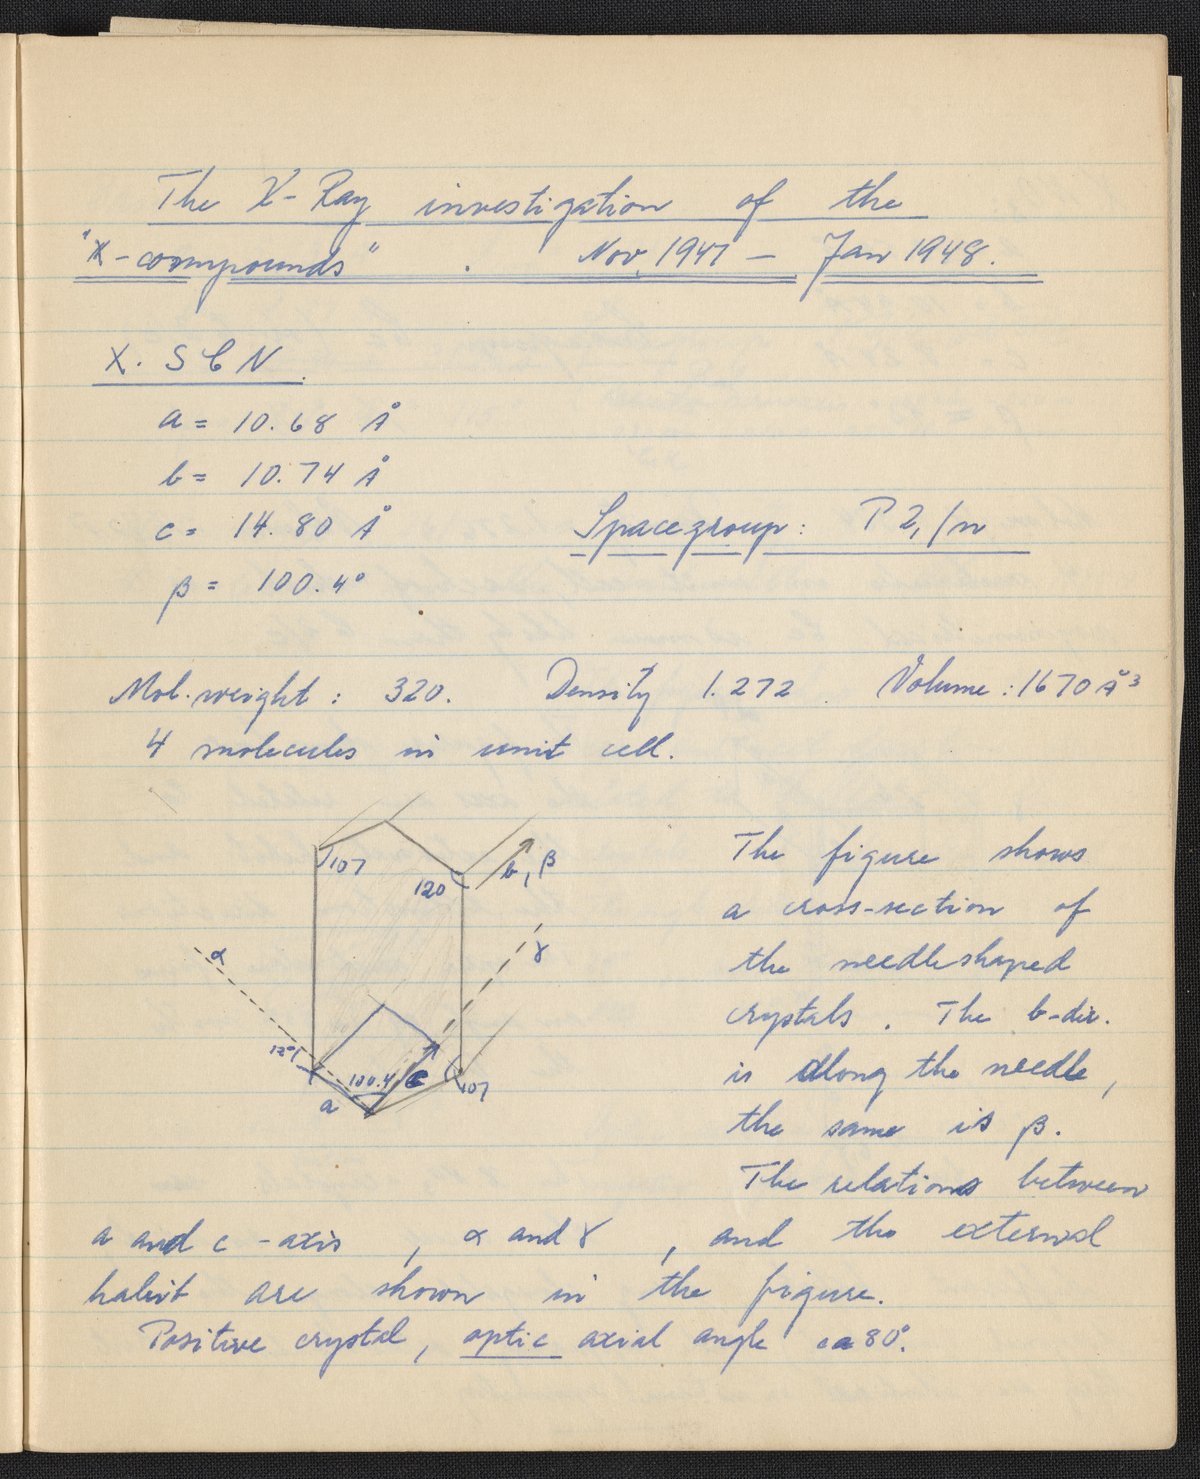 The X-Ray investigation of the
"X-compounds". Nov. 1947 — Jan 1948.
X. SCN.
a = 10.68 Å
b = 10.74 Å
c = 14.80 Å
Spacegroup: P 2₁/n
β = 100.4°
Mol. weight: 320. Density 1.272. Volume: 1670 Å³
4 molecules in unit cell.
107
120
b, β
α
γ
100.4
c
a
107
The figure shows
a cross-section of
the needleshaped
crystals. The b-dir.
is along the needle,
the same is β.
The relations between
a and c -axis, α and γ, and the external
habit are shown in the figure.
Positive crystal, optic axial angle ca 80°.